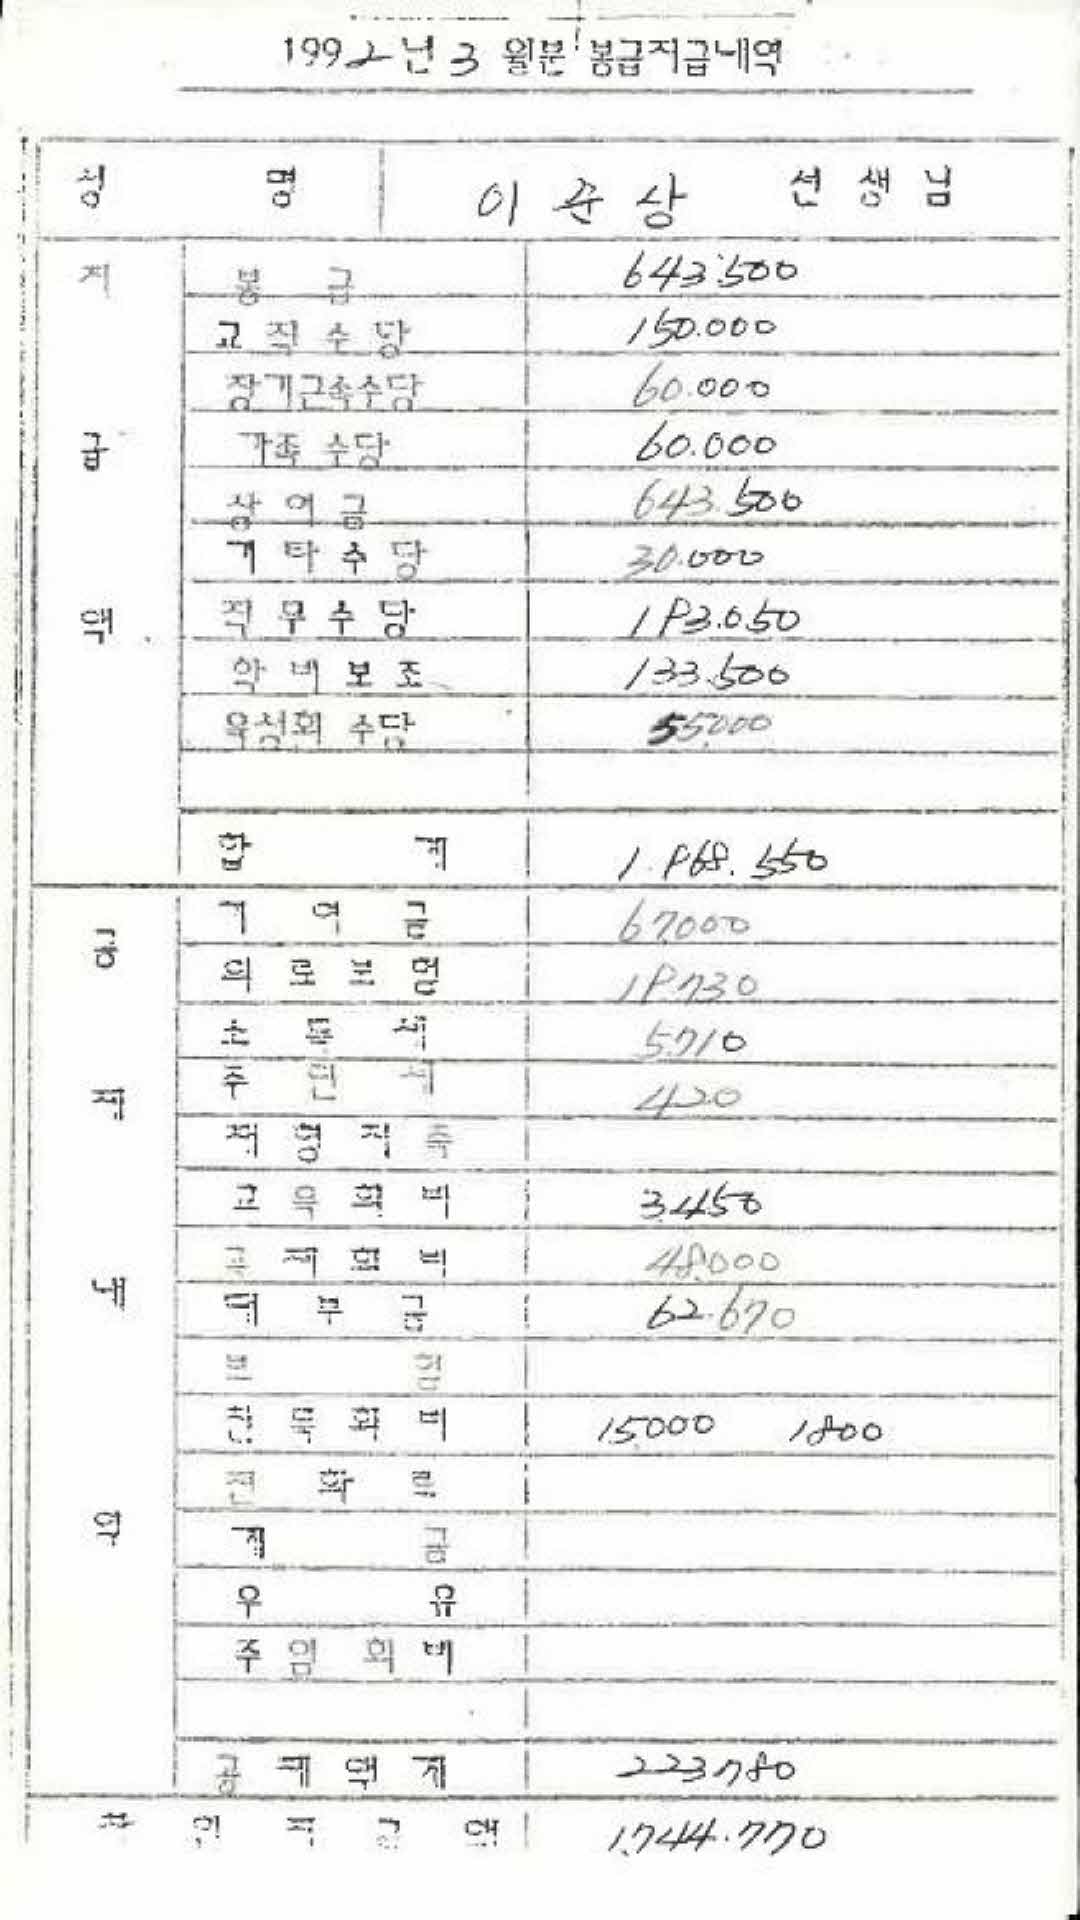 1992년 3 월분 봉급지급내역
성 명 이 준 상 선 생 님
지 급 액
봉 급 643.500
교 직 수 당 150.000
장기근속수당 60.000
가족 수당 60.000
상 여 금 643.500
기 타 수 당 30.000
직 무 수 당 193.050
학 비 보 조 133.500
육성회 수당 55,000
합 계 1.968.550
공 제 내 역
기 여 금 67,000
의 료 보 험 19,730
소 득 세 5,710
주 민 세 420
교 육 회 비 3,450
48,000
대 부 금 62.670
친 목 회 비 15,000 1800
전 화 료
적 금
우 유
주 임 회 비
공 제 액 계 223,780
차 인 지 급 액 1,744.770